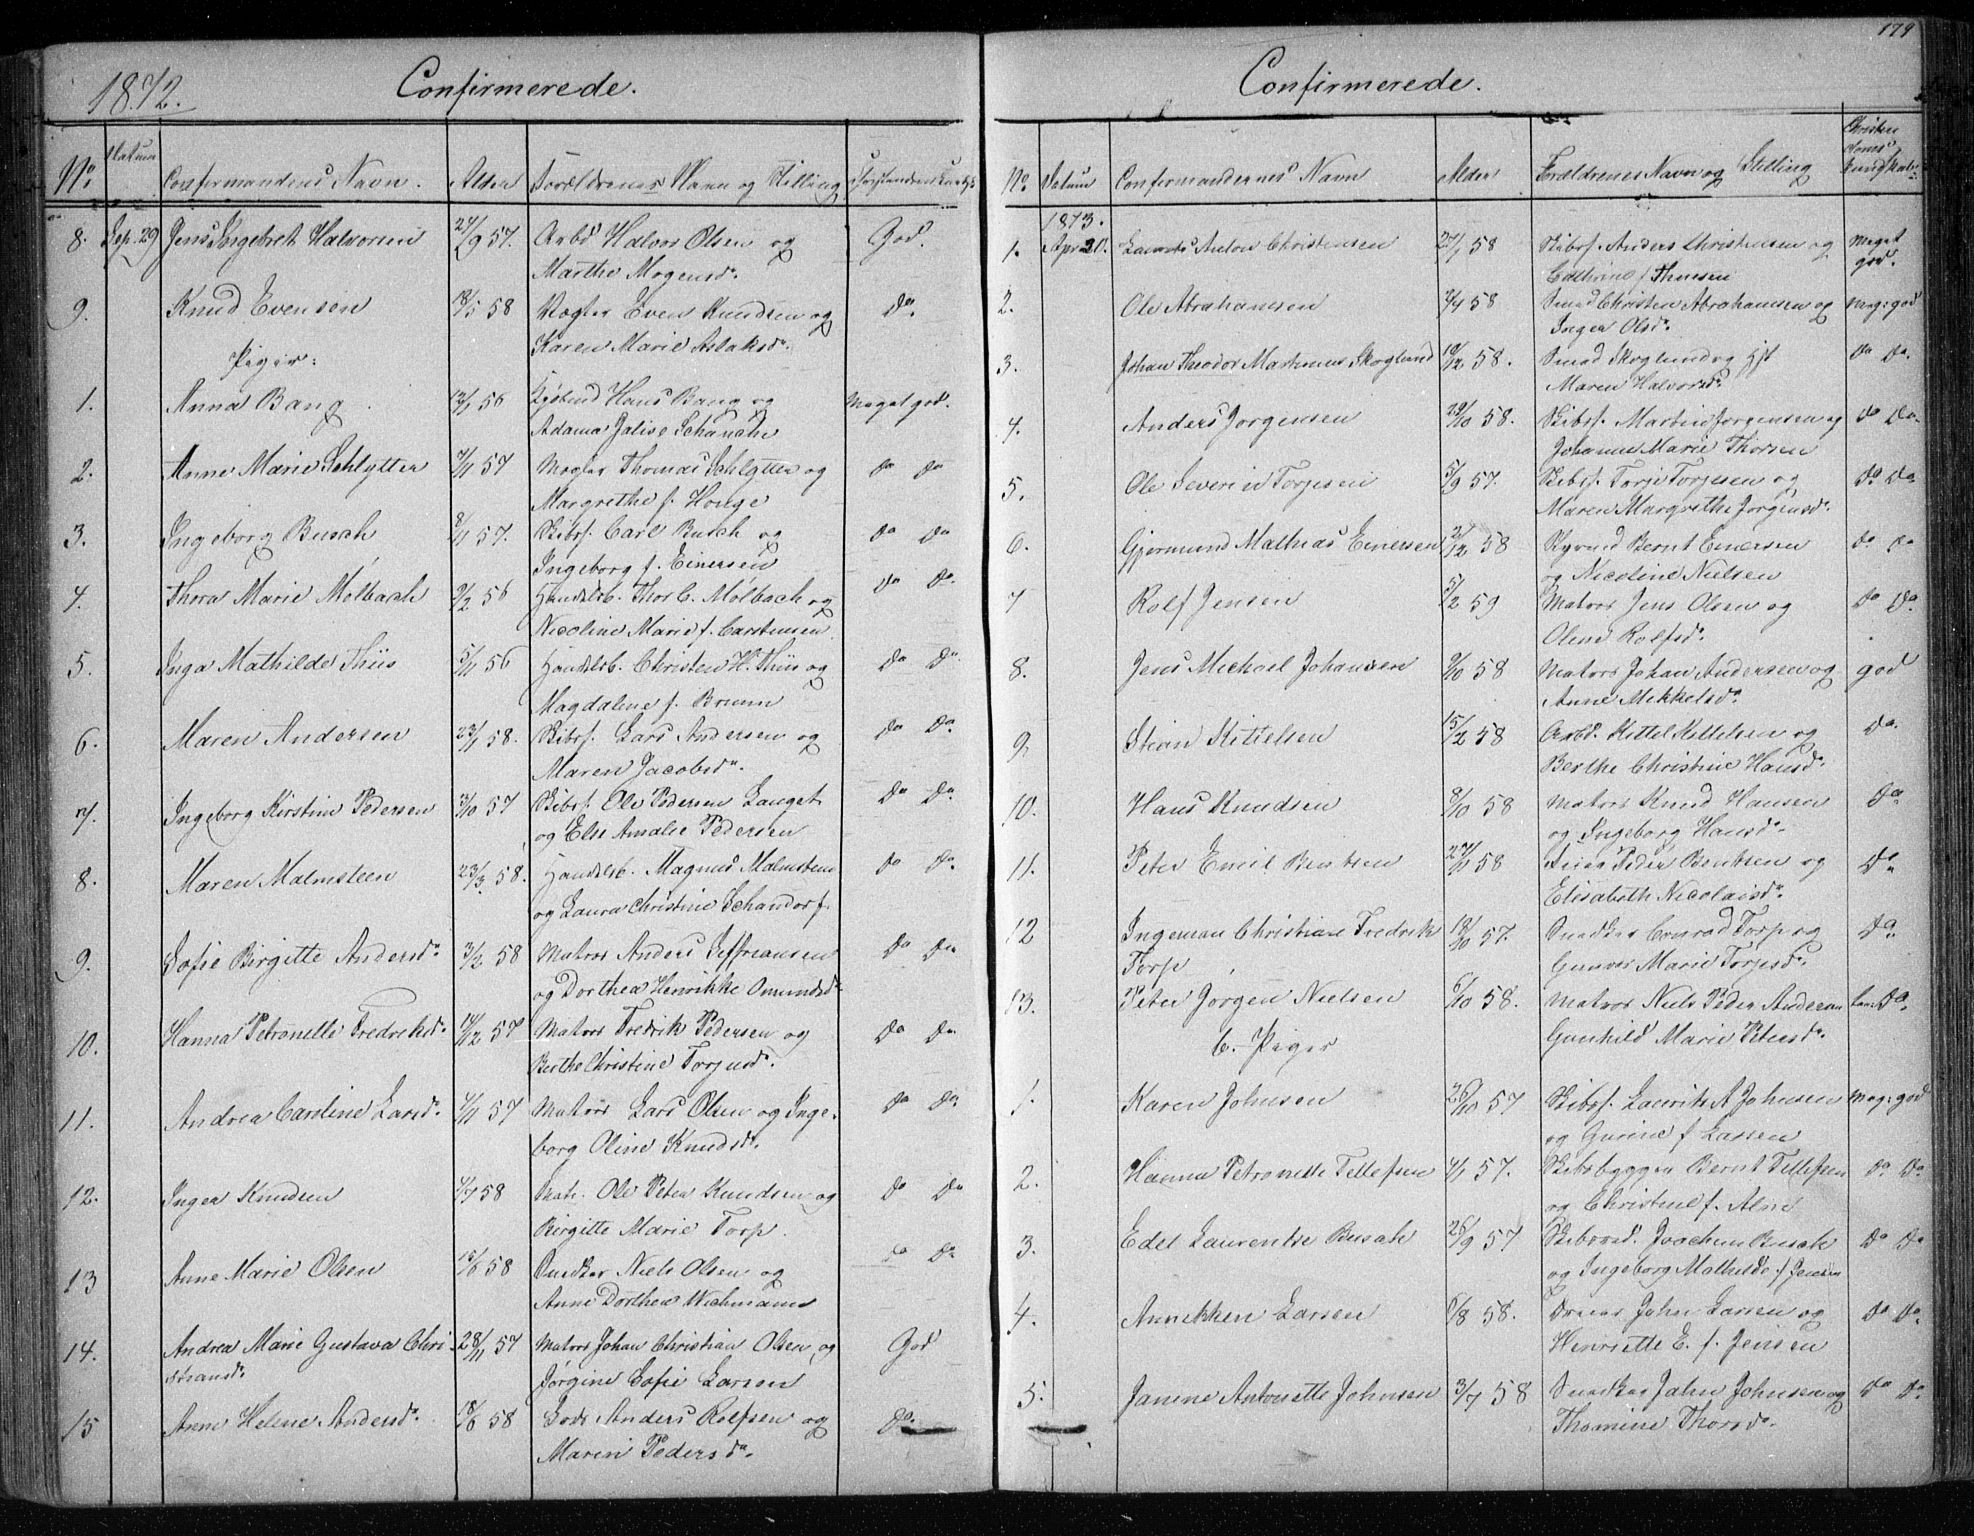 1872.
Confirmerede.
No. Datum Confirmandens Navn. Alder Forældrenes Navn og Stilling
8. Sep. 29 Jens Ingebret Halvorsen 24/9 57. Arbd Halvor Olsen og God.
Marthe Mogensd.
9. Knud Evensen 18/5 58 Møgler Even Knudsen og Do.
Karen Marie Aslaksd.
Piger:
1. Anna Bang 56 Hans Bang og Meget god.
Adama Jalise Schanche
2. Anne Marie Schlytter 57 Mægler Thomas Schlytter og do do
Margrethe f. Houge
3. Ingeborg Busch 8/11 57. Skibsf. Carl Busch og do do
Ingeborg f. Einersen
4. Thora Marie Mølbach 9/2 56 Handelsb. Thor C. Mølbach og do Do.
Nicoline Marie f. Carstensen
5. Inga Mathilde Thiis 5/11 56 Handelsb. Christen H. Thiis og Do Do.
Magdaline f. Bruun
6. Maren Andersen 23/1 58. Skibsf. Lars Andersen og Do Do.
Maren Jacobsd.
7. Ingeborg Kirstine Pedersen 3/10 57 Skibsf. Ole Pedersen Langet Do Do.
og Else Amalie Pedersen
8. Maren Malmsteen 23/3. 58. Handelsb. Magnus Malmsteen Do Do.
og Laura Christine Schandorf.
9. Sofie Birgitte Andersd. 3/2 58 Matros Anders Seffreansen Do Do
og Dorthea Henrikke Omundsd
10. Hanna Petronelle Fredriksd. 14/12 57 Matros Fredrik Pedersen og Do Do.
Berthe Christine Torjusd.
11. Andrea Caroline Larsd. 4/11 57 Matros Lars Olsen og Inge- Do Do
borg Oline Knudsd.
12. Inger Knudsen 4/7 58 Matr. Ole Peter Knudsen og Do Do
Birgitte Marie Torp.
13 Anne Marie Olsen 15/6 58 Snedker Niels Olsen og Do Do
Anne Dorthea Wichmann
14. Andrea Marie Gustava Chri- 28/11 57 Matros Johan Christian Olsen og God
Jørgine Sofie Larsen
15 Anne Helene Andersd. 18/6 58 Lods Anders Rolfsen og Do.
Maren Pedersd.
179
Confirmerede.
No. Datum Confirmandernes Navn Alder Forældrenes Navn og Stilling Christendoms Kundskab
1873.
1. Apr. 20. Laurits Anton Christensen 27/1 58 Skibsf. Anders Christensen og Meget god.
Cathrine f. Thuesen
2. Ole Abrahamsen 3/7 58 Smed Christen Abrahamsen og Meg: god
Inger Olsd.
3. Johan Theodor Martinus Skoglund 10/12 58. Smed Skoglund og Hst Do Do.
Maren Halvorsd.
4. Anders Jørgensen 29/10 58. Skibsf. Martin Jørgensen og do Do.
Johanne Marie Thorsen
5. Ole Severin Torjesen 5/9 57. Skibsf. Torje Torjesen og Do Do
Maren Margrethe Jørgensd.
6. Gjermund Mathias Einersen 2/12 58 Styrmd Bernt Einersen do do
og Nicoline Nielsen
7 Rolf Jensen 5/2 59 Matros Jens Olsen og Do Do.
Oline Rolfsd.
8. Jens Michael Johansen 9/10 58 Matros Johan Andersen og god
Anne Mikkelsd.
9. Stian Kittelsen 15/2 58 Arbd. Kittel Kittelsen og Do.
Berthe Christine Hansd.
10. Hans Knudsen 9/10 58 Matros Knud Hansen Do
og Ingeborg Hansd.
11. Peter Emil Bentsen 27/11 58 Peder Bentsen og Do
Elisabeth Nicolaisd.
12 Ingeman Christian Fredrik 19/10 57. Snedker Conrad Torp og Do.
Torp Gunvor Marie Torjesd.
13. Peter Jørgen Nielsen 6/10 58. Matros Niels Peder Andersen Do.
Gunhild Marie Petersd.
b. Piger
1. Karen Johnsen 26/10 57 Skibsf. Laurits A Johnsen Meg: god
og Gurine f Lassen
2. Hanna Petronelle Tellefsen 4/1 57. Skibsbygger Bernt Tellefsen Do Do.
og Christine f. Alm
3. Edel Laurentse Busch 26/9 57 Joachim Busch Do Do
og Ingeborg Mathilde f Jensen
4. Annikken Larsen 6/8 58. John Larsen og Do Do.
Henriette E. f. Jensen
5. Janine Antonette Johnsen 3/7 58 Snedker John Johnsen og Do Do.
Thomine Thorsd.